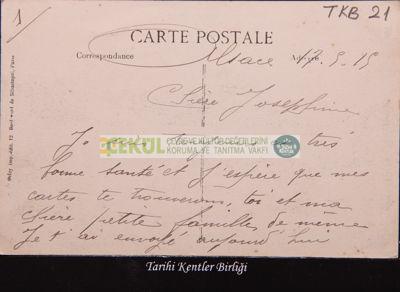 1
TKB 21
CARTE POSTALE
Correspondance
Adresse
Alsace 17.5.15
Chère Josephine
Je très
bonne santé et j'espère que mes
cartes te trouverons, toi et ma
chère petite familles de même
Je t'ai envoyé aujourd'hui
ÇEKÜL
ÇEVRE VE KÜLTÜR DEĞERLERİNİ
KORUMA VE TANITMA VAKFI
Tarihi Kentler Birliği